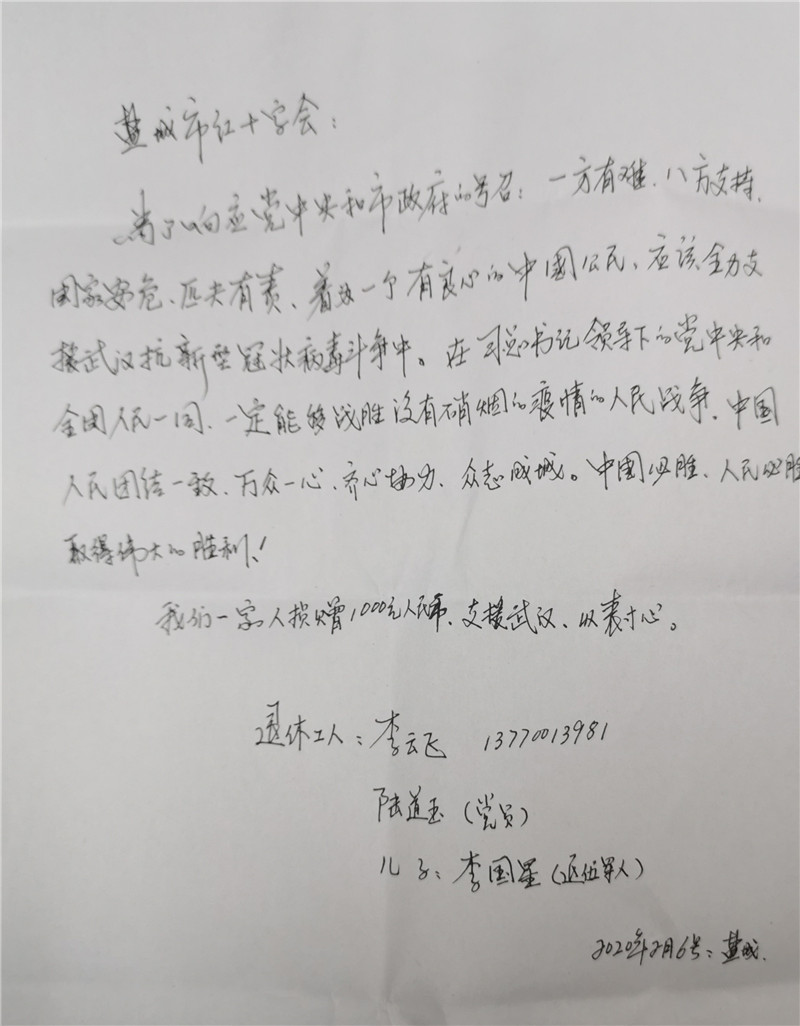 盐城市红十字会：
为了响应党中央和市政府的号召：一方有难、八方支持、
国家安危、匹夫有责、着为一个有良心的中国公民、应该全力支
援武汉抗新型冠状病毒斗争中。在习总书纪领导下的党中央和
全国人民一同、一定能够战胜没有硝烟的疫情的人民战争、中国
人民团结一致、万众一心、齐心协力、众志成城。中国必胜、人民必胜
取得伟大的胜利！
我们一家人捐赠1000元人民币、支援武汉、以表寸心。
退休工人：李云飞 13770013981
陆道玉（党员）
儿子：李国星（退伍军人）
2020年2月6号：盐城.